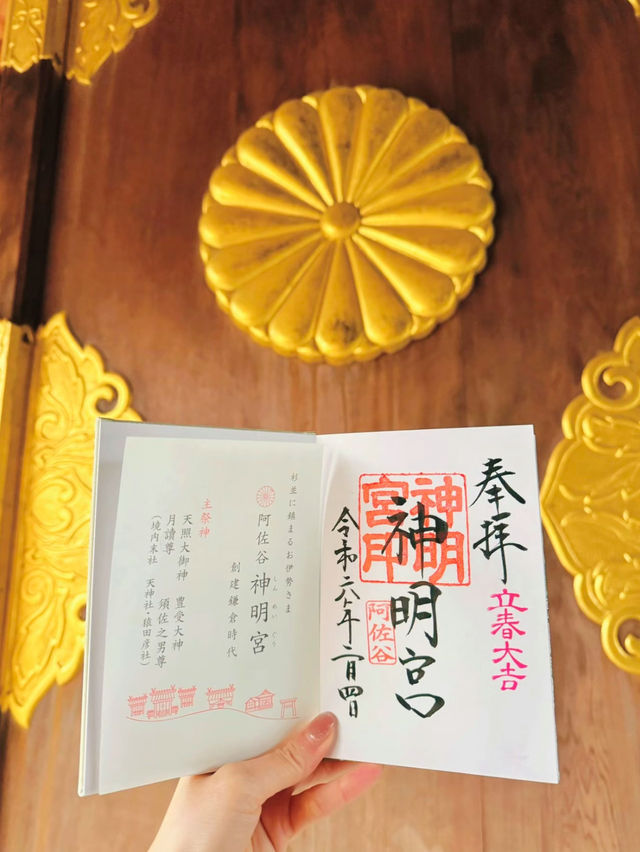 奉拝
立春大吉
神明宮
神明宮印
阿佐谷
令和六年二月四日
杉並に鎮まるお伊勢さま
阿佐谷 神明宮
しんめいぐう
創建鎌倉時代
主祭神
天照大御神 豊受大神
月讀尊 須佐之男尊
（境内末社 天神社・猿田彦社）